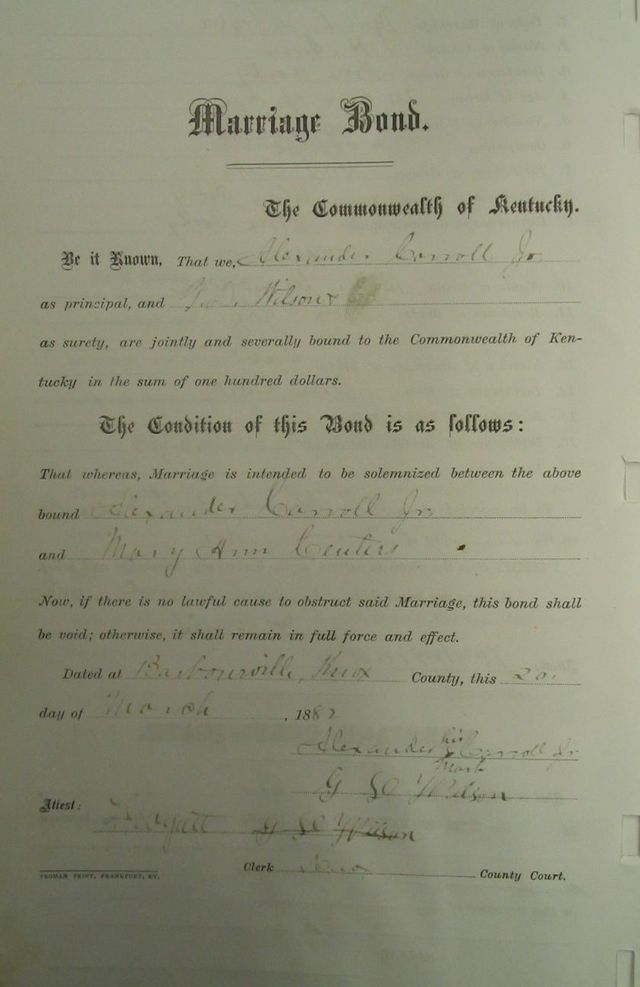 Marriage Bond.
The Commonwealth of Kentucky.
Be it Known, That we, Alexander Carroll Jr
as principal, and Wilson
as surety, are jointly and severally bound to the Commonwealth of Ken-
tucky in the sum of one hundred dollars.
The Condition of this Bond is as follows:
That whereas, Marriage is intended to be solemnized between the above
bound Alexander Carroll Jr.
and Mary Ann Centers
Now, if there is no lawful cause to obstruct said Marriage, this bond shall
be void; otherwise, it shall remain in full force and effect.
Dated at Barbourville, Knox County, this 20
day of March, 1882
his
Alexander x Carroll Jr
mark
G Wilson
Attest:
G Wilson
Clerk Knox County Court.
YEOMAN PRINT, FRANKFORT, KY.